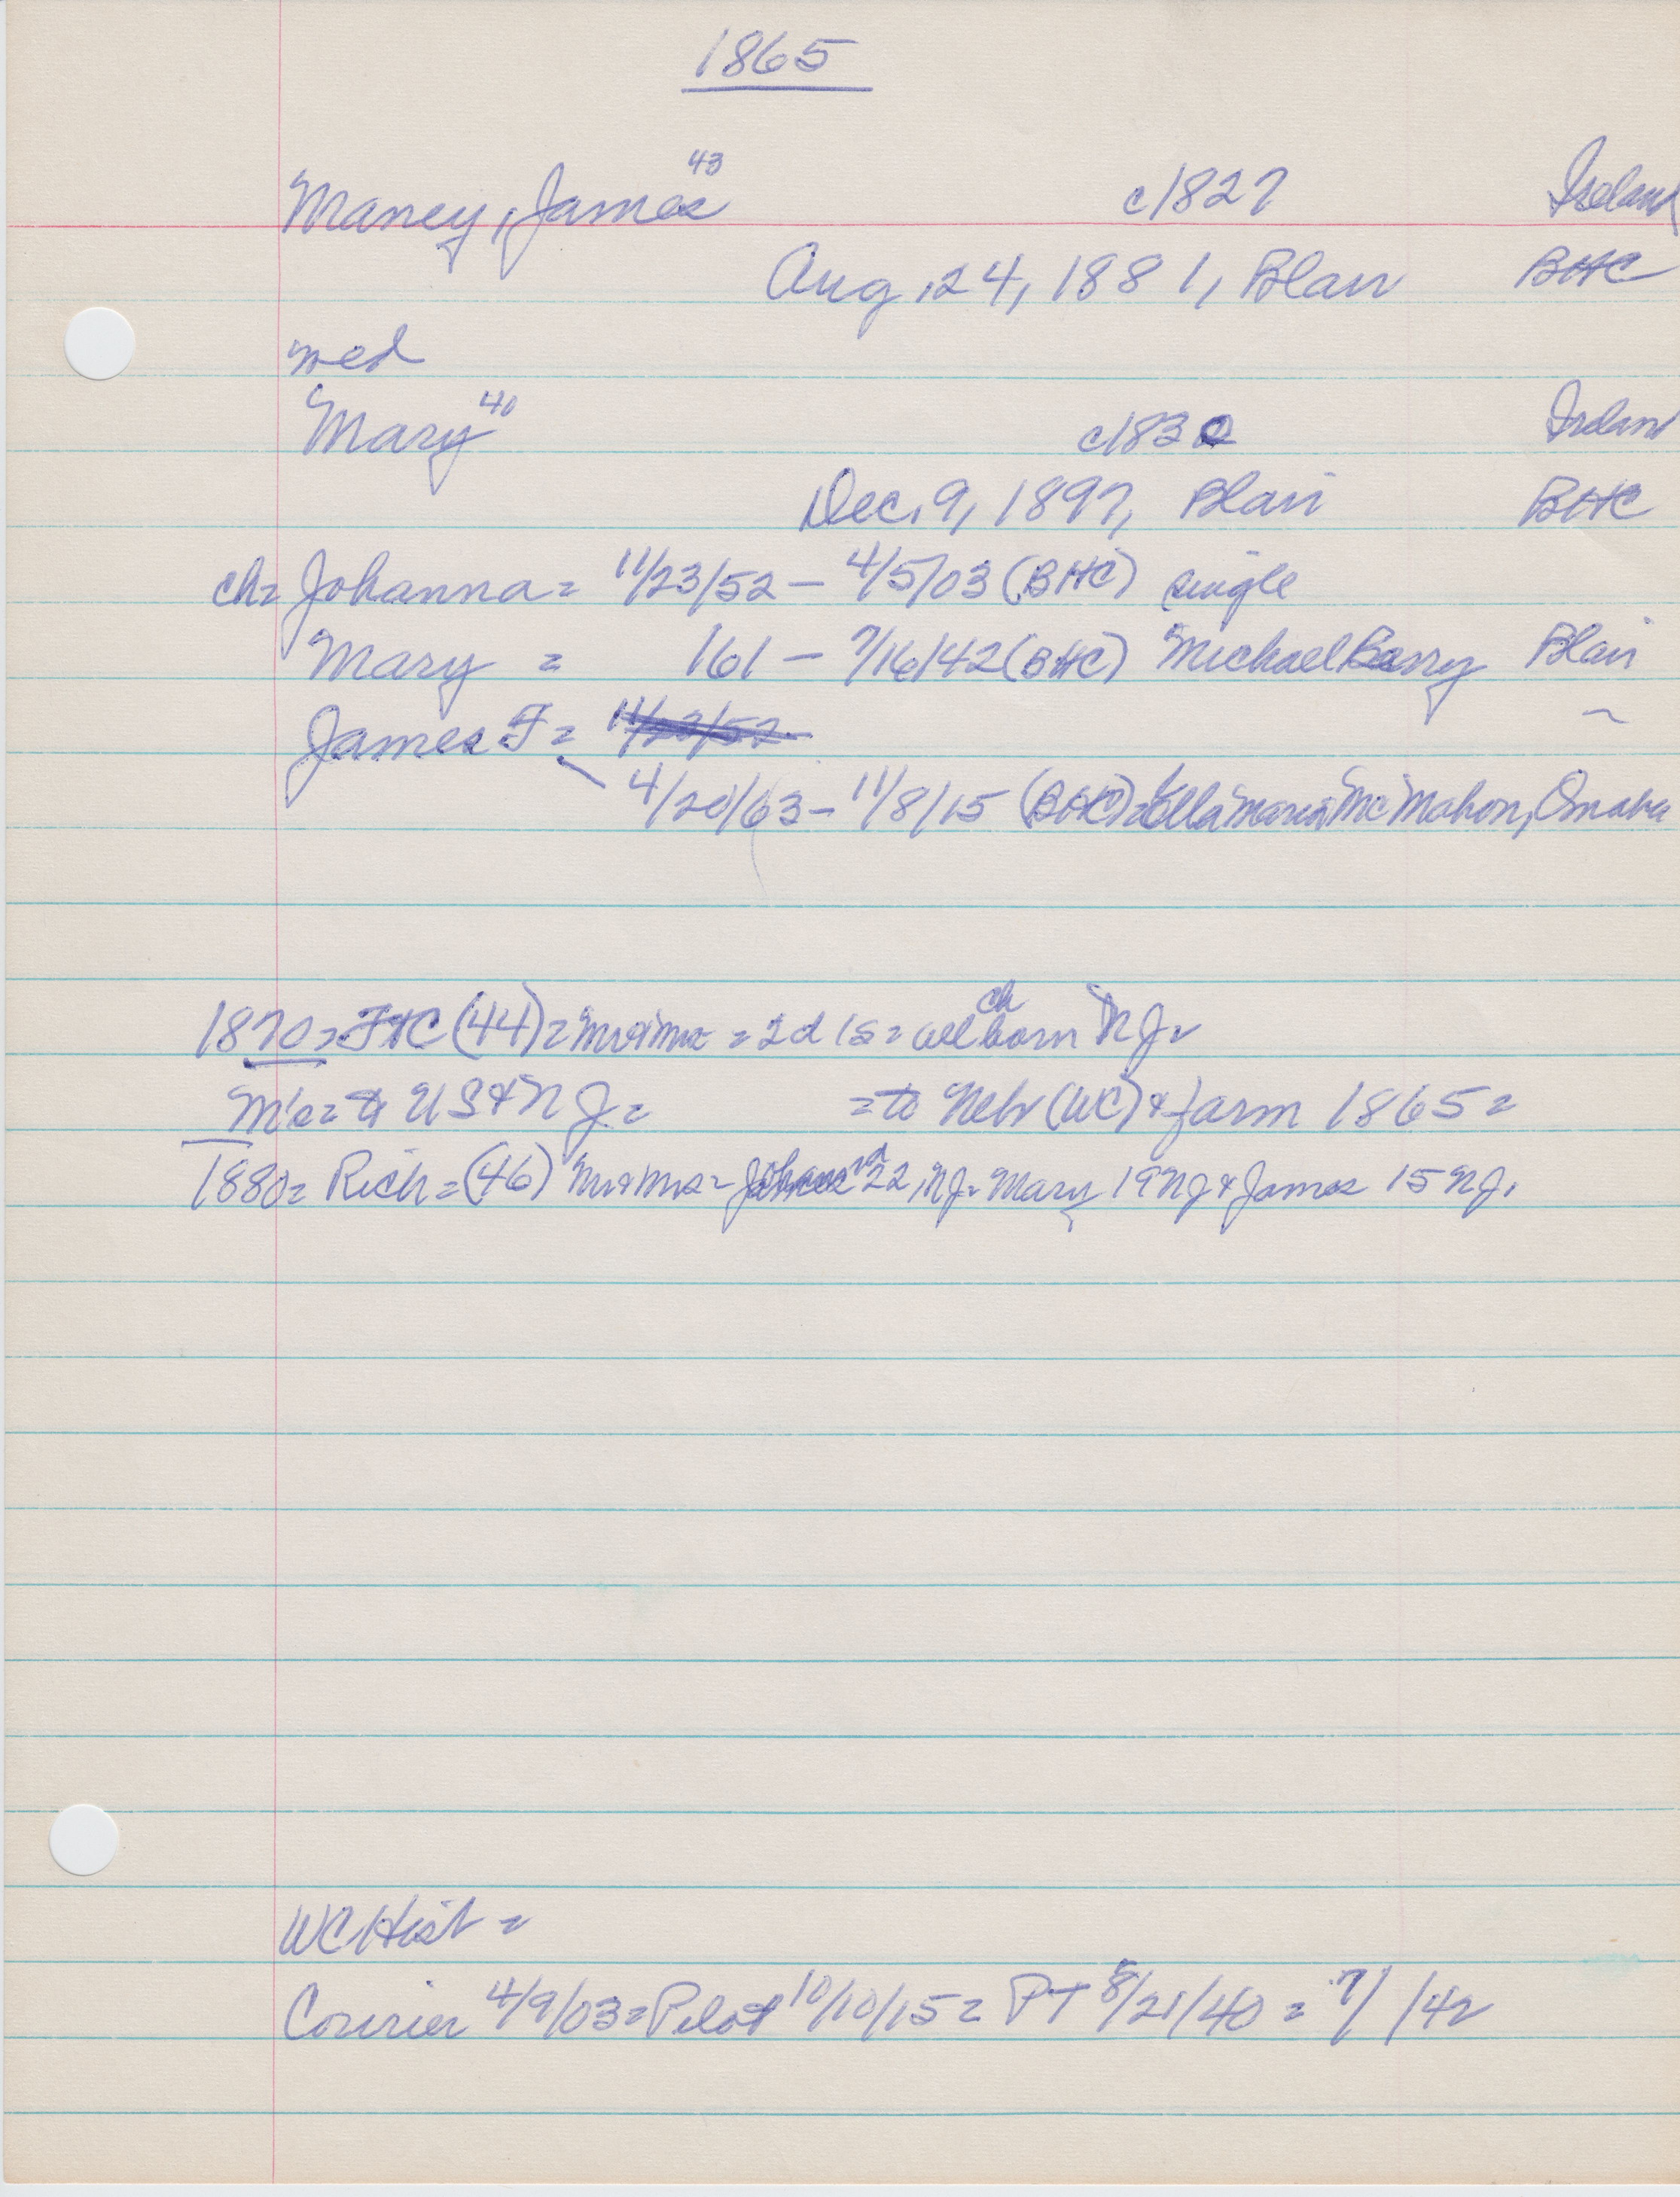 1865
43
Maney, James c1827 Ireland
Aug. 24, 1881, Blair BHC
wed
40
Mary c1830 Irelan
Dec. 9, 1897, Blair BHC
ch= Johanna = 11/23/52 — 4/5/03 (BHC) single
Mary = /61 — 7/16/42 (BHC) Michael Barry Blair
James F = 11/23/52
4/20/63 - 11/8/15 (BHC) = Ella Maria McMahon, Omaha
ch
1870 = FtC (44) = Mr & Mrs = 2d 1s = all born NJ =
M's = to US & NJ = = to Nebr (WC) & farm 1865 =
1880 = Rich = (46) Mr & Mrs = 22, NJ = Mary 19 NJ & James 15 NJ.
WC Hist =
Courier 4/9/03 = Pilot 10/10/15 = PT 8/21/40 = 7/ /42